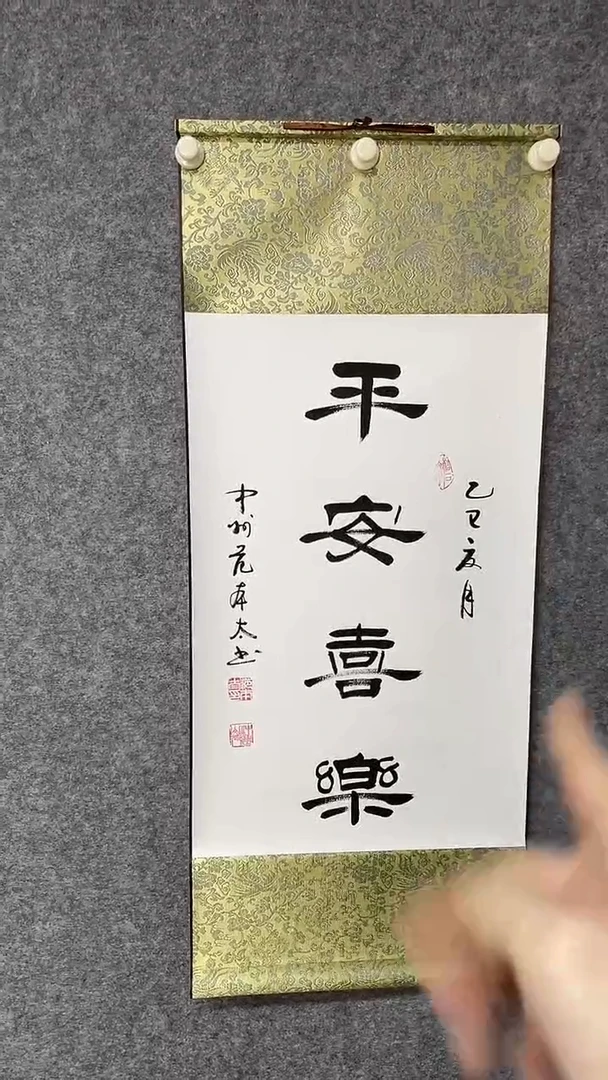 平安喜樂
乙巳夏月
中州范本太书